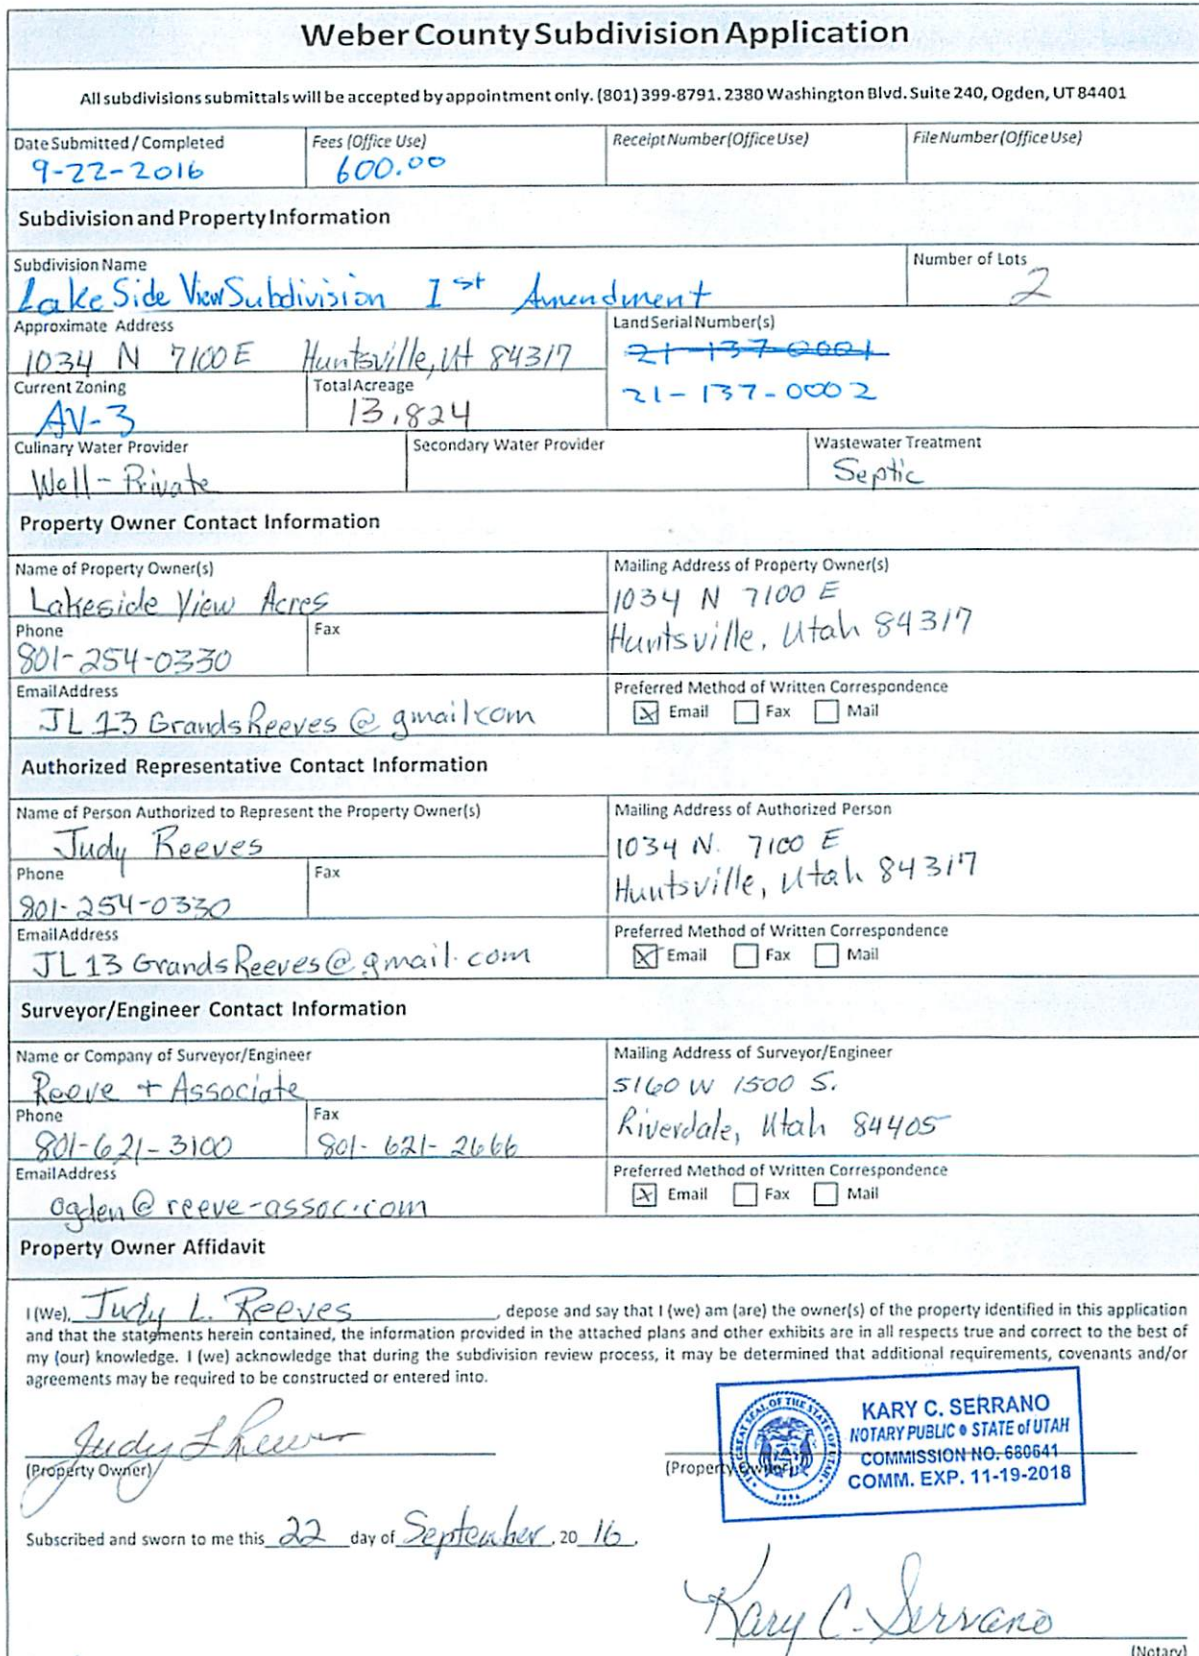 Weber County Subdivision Application
All subdivisions submittals will be accepted by appointment only. (801) 399-8791. 2380 Washington Blvd. Suite 240, Ogden, UT 84401
Date Submitted / Completed
9-22-2016
Fees (Office Use)
600.00
Receipt Number (Office Use)
File Number (Office Use)
Subdivision and Property Information
Subdivision Name
Lake Side View Subdivision 1st Amendment
Number of Lots
2
Approximate Address
1034 N 7100 E Huntsville, Ut 84317
Land Serial Number(s)
21-137-0001
21-137-0002
Current Zoning
AV-3
Total Acreage
13.824
Culinary Water Provider
Well-Private
Secondary Water Provider
Wastewater Treatment
Septic
Property Owner Contact Information
Name of Property Owner(s)
Lakeside View Acres
Mailing Address of Property Owner(s)
1034 N 7100 E
Huntsville, Utah 84317
Phone
801-254-0330
Fax
Email Address
JL13GrandsReeves@gmail.com
Preferred Method of Written Correspondence
Email Fax Mail
Authorized Representative Contact Information
Name of Person Authorized to Represent the Property Owner(s)
Judy Reeves
Mailing Address of Authorized Person
1034 N. 7100 E
Huntsville, Utah 84317
Phone
801-254-0330
Fax
Email Address
JL13GrandsReeves@gmail.com
Preferred Method of Written Correspondence
Email Fax Mail
Surveyor/Engineer Contact Information
Name or Company of Surveyor/Engineer
Reeve + Associate
Mailing Address of Surveyor/Engineer
5160 W 1500 S.
Riverdale, Utah 84405
Phone
801-621-3100
Fax
801-621-2666
Email Address
ogden@reeve-assoc.com
Preferred Method of Written Correspondence
Email Fax Mail
Property Owner Affidavit
I (We), Judy L. Reeves, depose and say that I (we) am (are) the owner(s) of the property identified in this application
and that the statements herein contained, the information provided in the attached plans and other exhibits are in all respects true and correct to the best of
my (our) knowledge. I (we) acknowledge that during the subdivision review process, it may be determined that additional requirements, covenants and/or
agreements may be required to be constructed or entered into.
Judy L Reeves
(Property Owner)
(Property Owner)
KARY C. SERRANO
NOTARY PUBLIC • STATE of UTAH
COMMISSION NO. 680641
COMM. EXP. 11-19-2018
Subscribed and sworn to me this 22 day of September, 20 16.
Kary C. Serrano
(Notary)